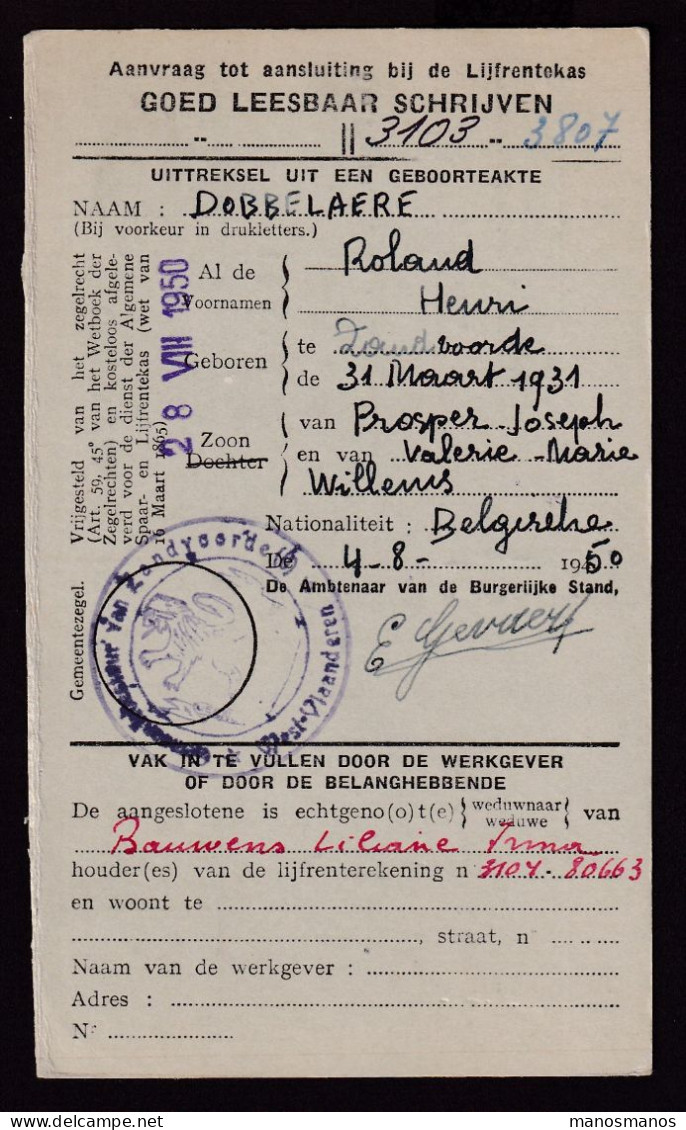 Aanvraag tot aansluiting bij de Lijfrentekas
GOED LEESBAAR SCHRIJVEN
3103 3807
UITTREKSEL UIT EEN GEBOORTEAKTE
NAAM : DOBBELAERE
(Bij voorkeur in drukletters.)
Vrijgesteld van het zegelrecht
(Art. 59, 45° van het Wetboek der
Zegelrechten) en kosteloos afgele-
verd voor de dienst der Algemene
Spaar- en Lijfrentekas (wet van
16 Maart 1865)
28 VIII 1950
Al de Voornamen
Roland
Henri
Geboren
te Zandvoorde
de 31 Maart 1931
Zoon
Dochter
van Prosper Joseph
en van Valerie-Marie
Willems
Nationaliteit : Belgische
De 4-8- 1950
De Ambtenaar van de Burgerlijke Stand,
E Gevaert
Gemeentezegel.
van Zandvoorde
West-Vlaanderen
VAK IN TE VULLEN DOOR DE WERKGEVER
OF DOOR DE BELANGHEBBENDE
De aangeslotene is echtgeno(o)t(e) weduwnaar weduwe van
Bauwens Liliane Irma
houder(es) van de lijfrenterekening n 3107-80663
en woont te
, straat, n°
Naam van de werkgever :
Adres :
N°
manosmanos